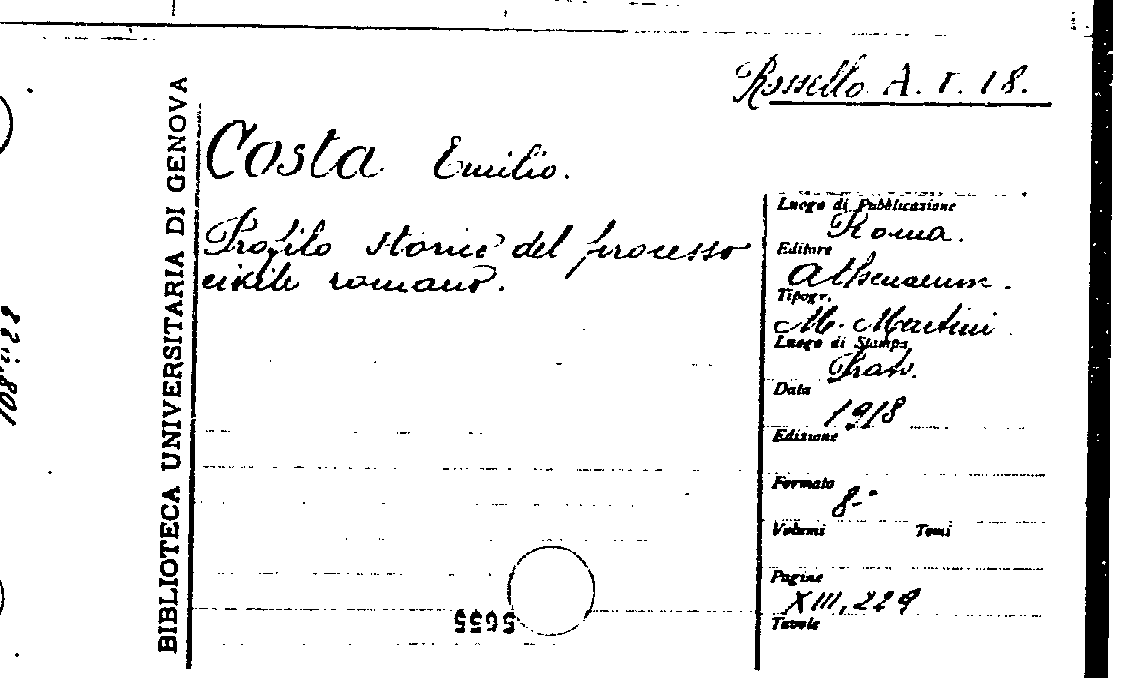 Rossello A. V. 18.
BIBLIOTECA UNIVERSITARIA DI GENOVA
Costa Emilio.
Profilo storico del processo
civile romano.
Luogo di Pubblicazione
Roma.
Editore
Athenaeum.
Tipogr.
M. Martini
Luogo di Stampa
Prato.
Data
1918
Edizione
Formato
8°
Volumi Tomi
Pagine
XIII, 229
Tavole
5655